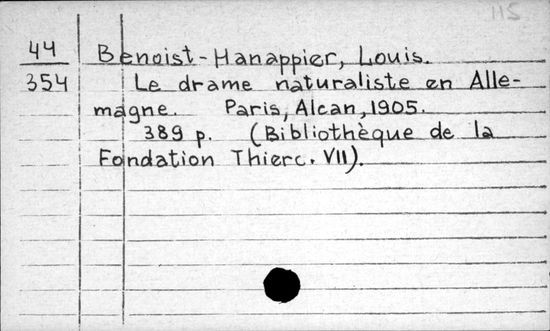 115
44 Benoist-Hanappier, Louis.
354 Le drame naturaliste en Alle-
magne. Paris, Alcan, 1905.
389 p. (Bibliothèque de la
Fondation Thierc. VII).